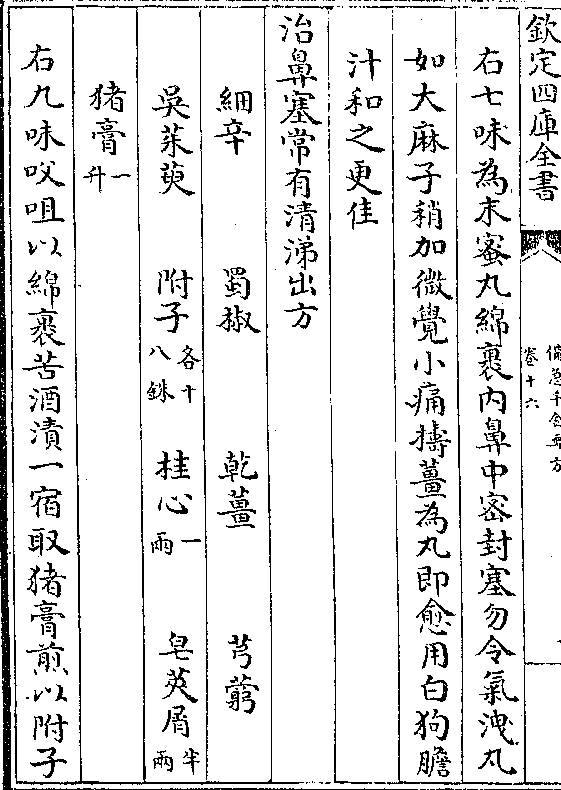 欽定四庫全書
備急千金要方
卷十六
右七味為末蜜丸綿裹内鼻中密封塞勿令氣洩丸
如大麻子稍加微覺小痛擣薑為丸即愈用白狗膽
汁和之更佳
治鼻塞常有清涕出方
細辛 蜀椒 乾薑 芎藭
吳茱萸 附子各十八銖 桂心一兩 皂莢屑半兩
猪膏一升
右九味㕮咀以綿裹苦酒漬一宿取猪膏煎以附子